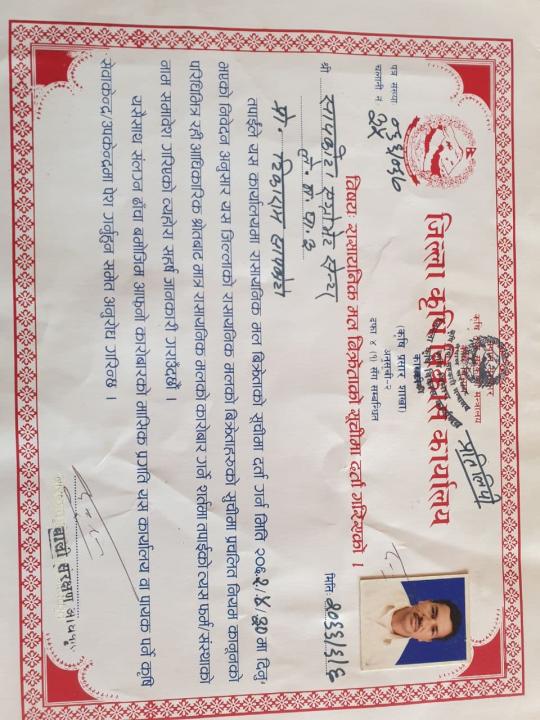 नेपाल सरकार
कृषि तथा सहकारी मन्त्रालय
कृषि विभाग
जिल्ला कृषि विकास कार्यालय
प्रतिलिपी
(कृषि प्रसार शाखा)
अनुसूची-२
दफा ४ (१) सँग सम्बन्धित
पत्र संख्या ०६३/०६४
चलानी नं. २५
मिति:
विषय: रासायनिक मल बिक्रेताको सूचीमा दर्ता गरिएको ।
श्री सापकोटा एग्रोभेट सेन्टर
प्रो. टिकाराम सापकोटा
तपाईंले यस कार्यालयमा रसायनिक मल बिक्रेताको सूचीमा दर्ता गर्न मिति २०६२/४/२० मा दिनु
भएको निवेदन अनुसार यस जिल्लाको रसायनिक मलको बिक्रेताहरुको सूचीमा प्रचलित नियम कानूनको
परिधिभित्र रही आधिकारिक श्रोतबाट मात्र रसायनिक मलको कारोबार गर्ने शर्तमा तपाईंको त्यस फर्म/संस्थाको
नाम समावेश गरिएको व्यहोरा सहर्ष जानकारी गराउँदछौं ।
यसैसाथ संलग्न ढाँचा बमोजिम आफ्नो कारोबारको मासिक प्रगति यस कार्यालय वा पायक पर्ने कृषि
सेवाकेन्द्र/उपकेन्द्रमा पेश गर्नुहुन समेत अनुरोध गरिन्छ ।
बाली संरक्षण